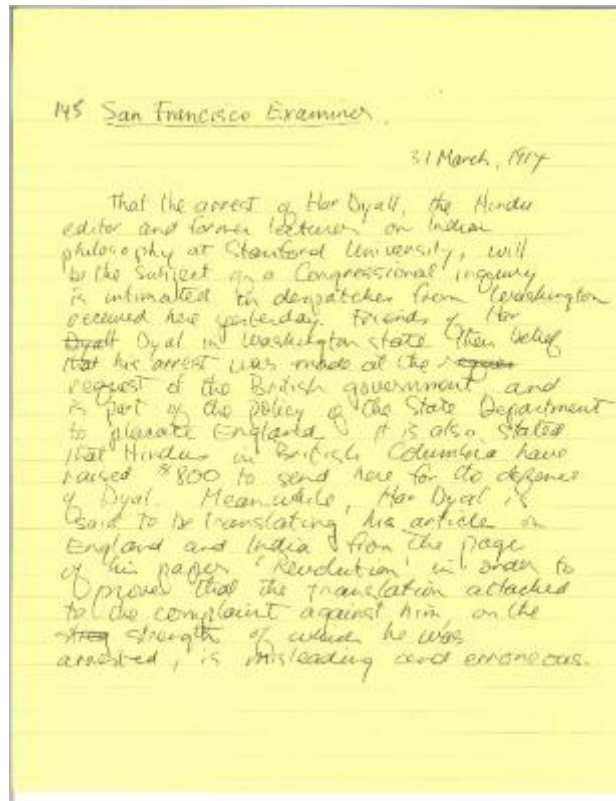 145 San Francisco Examiner.
31 March, 1914
That the arrest of Har Dyall, the Hindu
editor and former lecturer on Indian
philosophy at Stanford University, will
be the subject of a Congressional inquiry
is intimated in despatches from Washington
received here yesterday. Friends of Har
Dyall Dyal in Washington state their belief
that his arrest was made at the reques
request of the British government and
is part of the policy of the State Department
to placate England. It is also stated
that Hindus in British Columbia have
raised $800 to send here for the defense
of Dyal. Meanwhile, Har Dyal is
said to be translating his article on
England and India from the page
of his paper 'Revolution' in order to
prove that the translation attached
to the complaint against him, on the
streg strength of which he was
arrested, is misleading and erroneous.